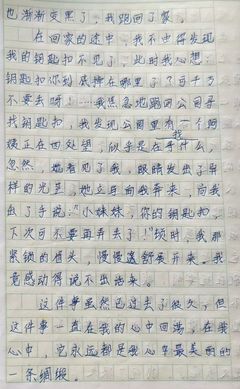 也渐渐变黑了，我跑回了家。
在回家的途中，我不由得发现
我的钥匙扣不见了，此时我心想：
钥匙扣你到底掉在哪里了？可千万
不要丢呀！……我急忙地跑回公园寻
找钥匙扣，我发现公园里有一个阿
姨正在四处望，似乎是在找什么，
忽然，她看见了我，眼睛发出了异
样的光芒，她立马向我奔来，向我
出了手说：“小妹妹，你的钥匙扣，
下次可不要再弄丢了！”顷时，我那
紧锁的眉头，慢慢逸舒展开来。我
竟感动得说不出话来。
这件事虽然已过去了很久，但
这件事一直在我的心中回荡，在我
心中，它永远都是我心里最美丽的
一条绸缎。